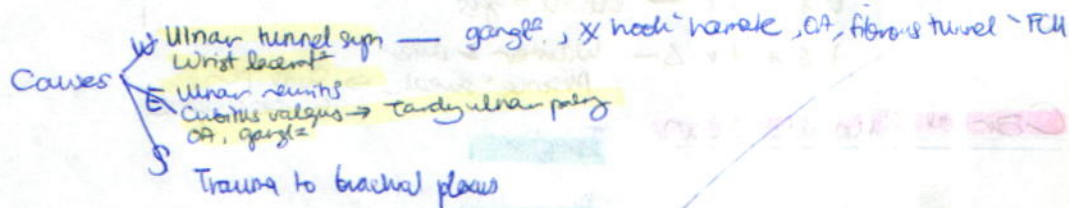 Causes
W Ulnar tunnel syn — gangl=, # hook ~ hamate, OA, fibrous tunnel ~ FCU
Wrist lacerat=
E Ulnar neuritis
Cubitus valgus → Tardy ulnar palsy
OA, gangl=
S
Trauma to brachial plexus